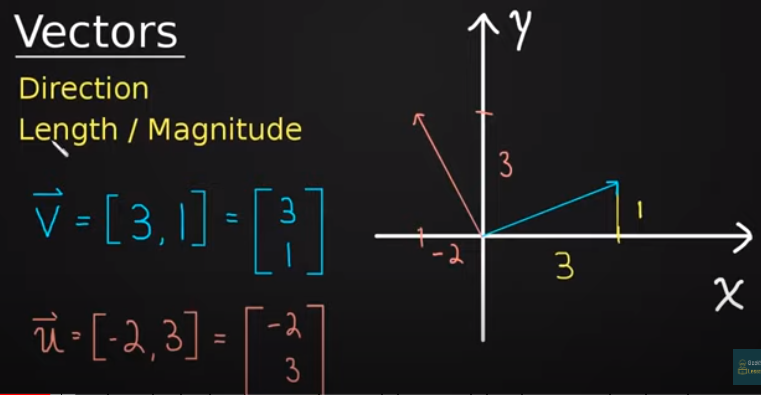 Vectors
Direction
Length / Magnitude
v⃗ = [3, 1] = [3
1]
u⃗ = [-2, 3] = [-2
3]
y
3
1
-2
3
x